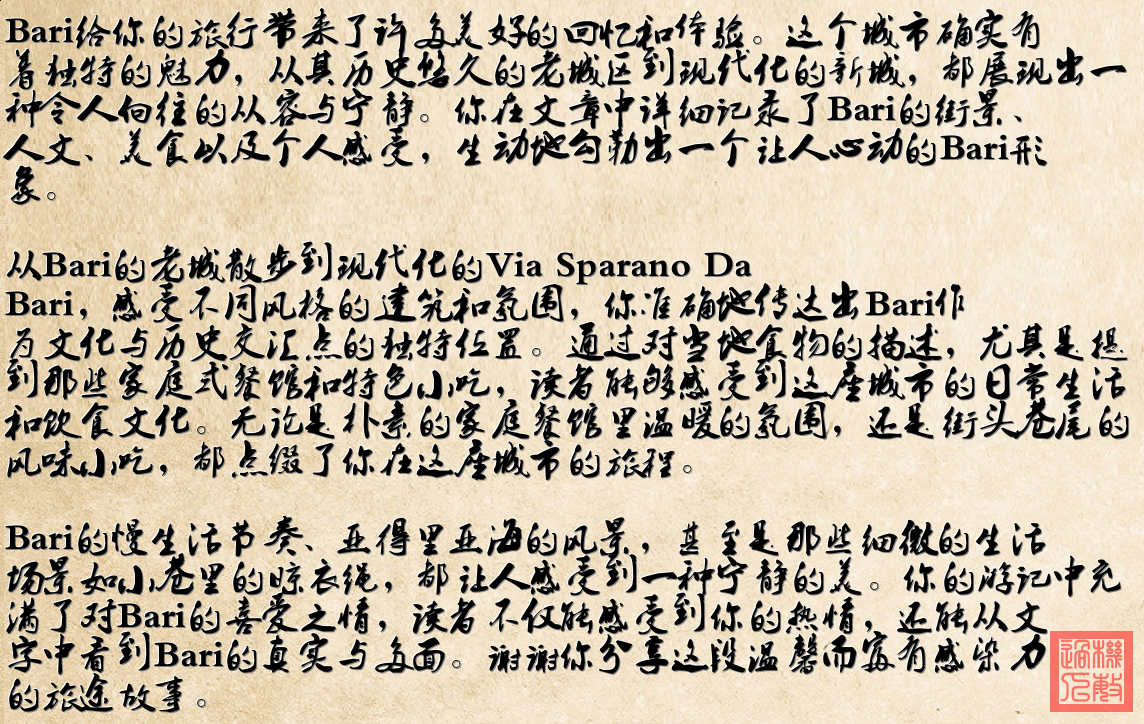 Bari给你的旅行带来了许多美好的回忆和体验。这个城市确实有
着独特的魅力，从其历史悠久的老城区到现代化的新城，都展现出一
种令人向往的从容与宁静。你在文章中详细记录了Bari的街景、
人文、美食以及个人感受，生动地勾勒出一个让人心动的Bari形
象。
从Bari的老城散步到现代化的Via Sparano Da
Bari，感受不同风格的建筑和氛围，你准确地传达出Bari作
为文化与历史交汇点的独特位置。通过对当地食物的描述，尤其是提
到那些家庭式餐馆和特色小吃，读者能够感受到这座城市的日常生活
和饮食文化。无论是朴素的家庭餐馆里温暖的氛围，还是街头巷尾的
风味小吃，都点缀了你在这座城市的旅程。
Bari的慢生活节奏、亚得里亚海的风景，甚至是那些细微的生活
场景如小巷里的晾衣绳，都让人感受到一种宁静的美。你的游记中充
满了对Bari的喜爱之情，读者不仅能感受到你的热情，还能从文
字中看到Bari的真实与多面。谢谢你分享这段温馨而富有感染力
的旅途故事。